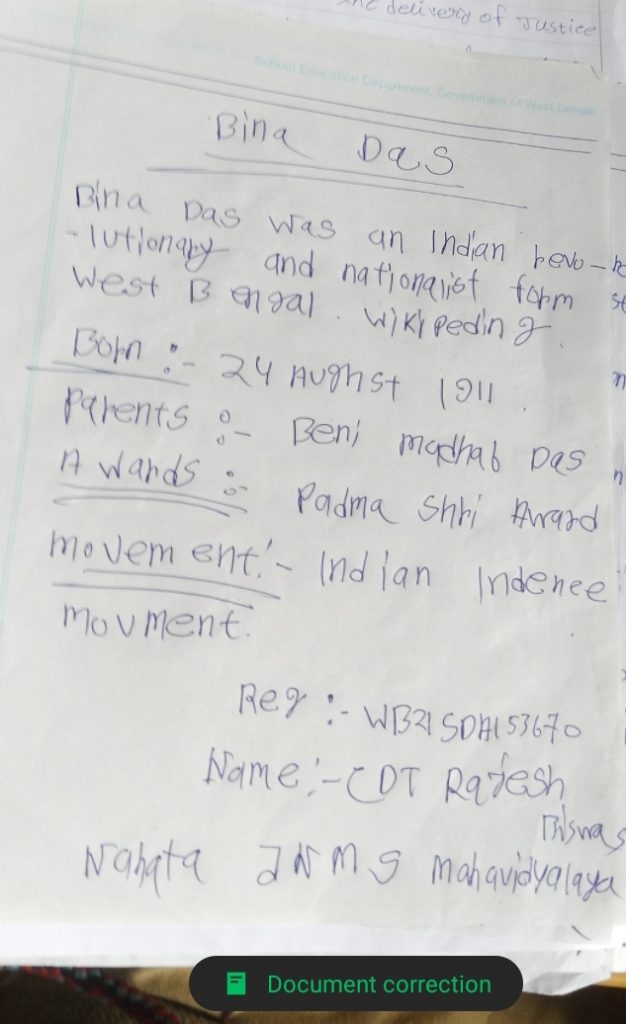 the delivery of Justice
School Education Department, Government of West Bengal
Bina Das
Bina Das was an Indian revo-
-lutionary and nationalist form
West Bengal. Wikipeding.
Born :- 24 Aughst 1911.
Parents :- Beni madhab Das
Awards :- Padma Shri Award
movement :- Indian Indenee
movment.
Reg :- WB21SDA153670
Name :- CDT Rajesh
Biswas
Nahata JNMS mahavidyalaya
Document correction